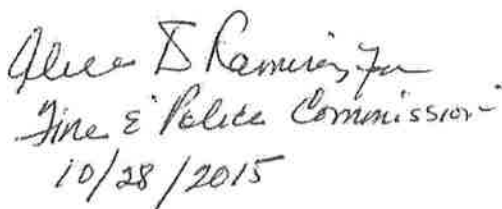 Alice D Ramirez for
Fire & Police Commission
10/28/2015